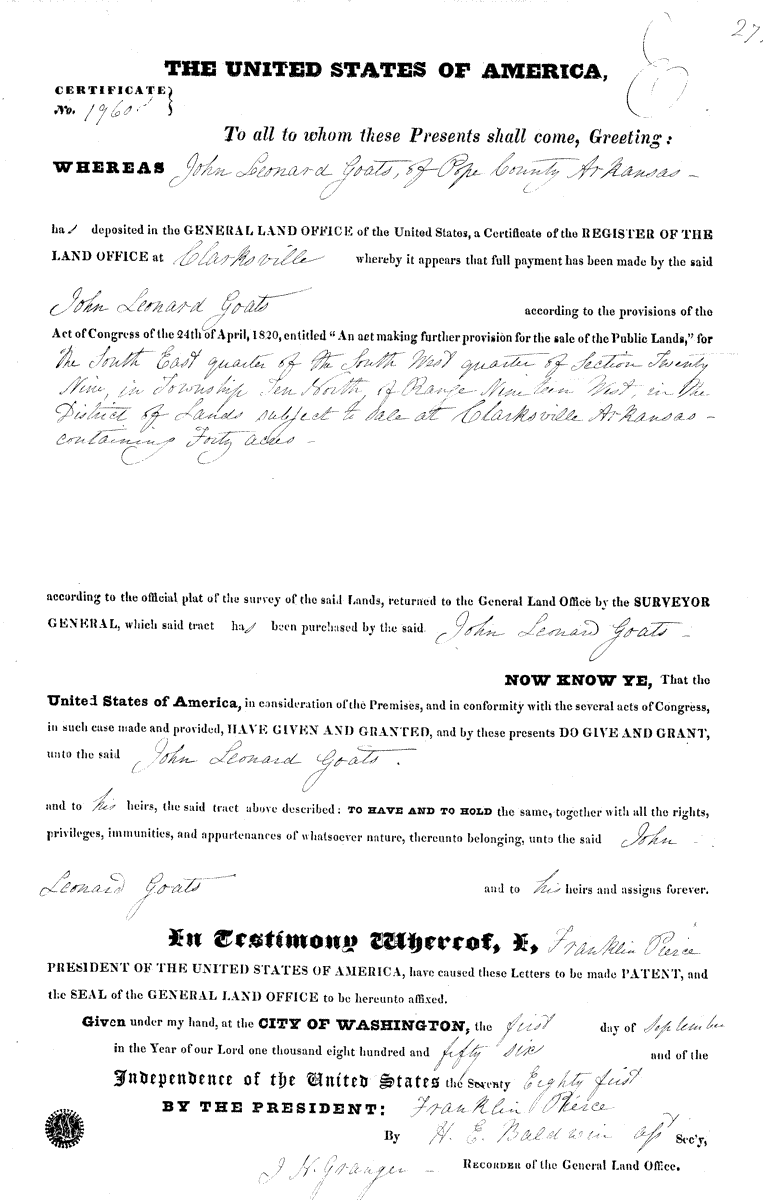 27
THE UNITED STATES OF AMERICA,
CERTIFICATE
No. 1960
To all to whom these Presents shall come, Greeting:
WHEREAS John Leonard Goats, of Pope County Arkansas –
has deposited in the GENERAL LAND OFFICE of the United States, a Certificate of the REGISTER OF THE
LAND OFFICE at Clarksville whereby it appears that full payment has been made by the said
John Leonard Goats according to the provisions of the
Act of Congress of the 24th of April, 1820, entitled "An act making further provision for the sale of the Public Lands," for
the South East quarter of the South West quarter of Section Twenty
Nine, in Township Ten North, of Range Nineteen West, in the
District of Lands subject to sale at Clarksville Arkansas –
containing Forty acres –
according to the official plat of the survey of the said Lands, returned to the General Land Office by the SURVEYOR
GENERAL, which said tract has been purchased by the said John Leonard Goats –
NOW KNOW YE, That the
United States of America, in consideration of the Premises, and in conformity with the several acts of Congress,
in such case made and provided, HAVE GIVEN AND GRANTED, and by these presents DO GIVE AND GRANT,
unto the said John Leonard Goats.
and to his heirs, the said tract above described: TO HAVE AND TO HOLD the same, together with all the rights,
privileges, immunities, and appurtenances of whatsoever nature, thereunto belonging, unto the said John –
Leonard Goats and to his heirs and assigns forever.
In Testimony Whereof, I, Franklin Pierce
PRESIDENT OF THE UNITED STATES OF AMERICA, have caused these Letters to be made PATENT, and
the SEAL of the GENERAL LAND OFFICE to be hereunto affixed.
Given under my hand, at the CITY OF WASHINGTON, the first day of September
in the Year of our Lord one thousand eight hundred and fifty six and of the
Independence of the United States the Seventy Eighty first
BY THE PRESIDENT: Franklin Pierce
By H. E. Baldwin Asst Sec'y,
J N Granger – RECORDER of the General Land Office.